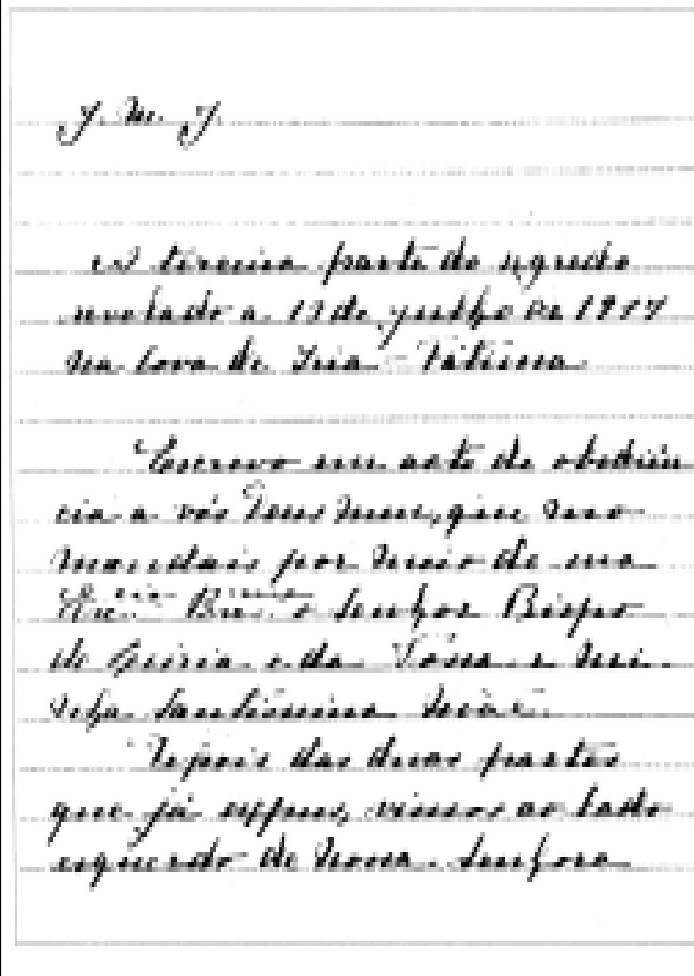 J. M. J.
A terceira parte do segredo
revelado a 13 de julho de 1917
na Cova de Iria - Fátima
Escrevo em acto de obediên
cia a vós Deus meu, que mo
mandais por meio de sua
Ex.cia Rev.ma o Senhor Bispo
de Leiria e da Vossa e mi
nha Santissima Mãe.
Depois das duas partes
que já expus, vimos ao lado
esquerdo de Nossa Senhora